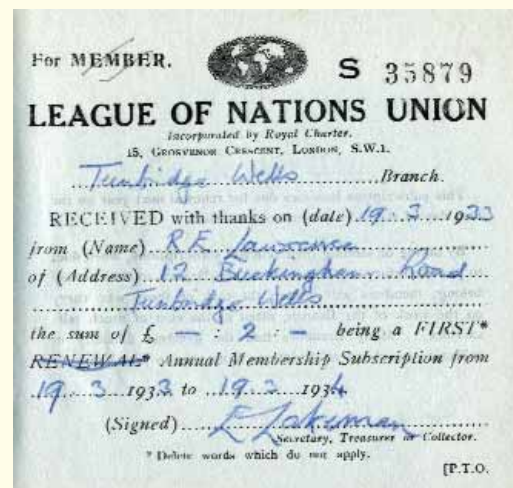 For MEMBER.
S 35879
LEAGUE OF NATIONS UNION
Incorporated by Royal Charter.
15, GROSVENOR CRESCENT, LONDON, S.W.1.
Tunbridge Wells Branch.
RECEIVED with thanks on (date) 19.3.1933
from (Name) R E Lawrence
of (Address) 12 Buckingham Road
Tunbridge Wells
the sum of £ — : 2 : — being a FIRST*
RENEWAL* Annual Membership Subscription from
19.3.1933 to 19.3.1934
(Signed)
Secretary, Treasurer or Collector.
* Delete words which do not apply.
[P.T.O.